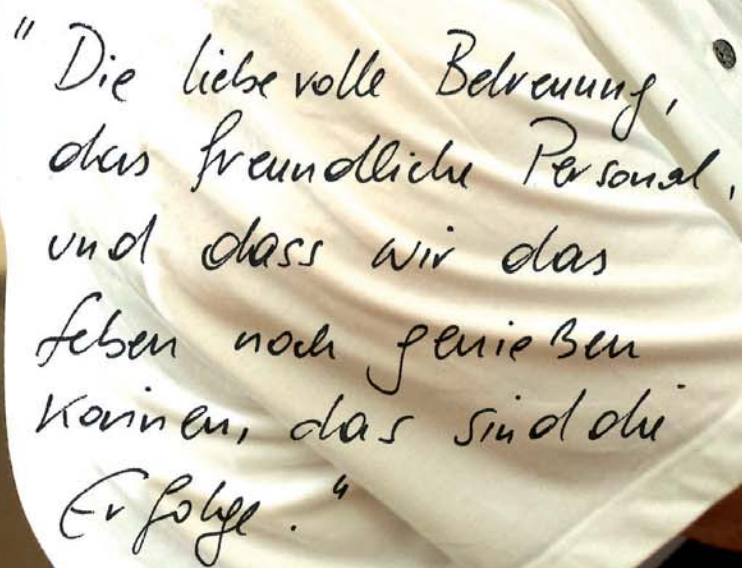 "Die liebevolle Betreuung,
das freundliche Personal,
und dass wir das
Leben noch genießen
können, das sind die
Erfolge."